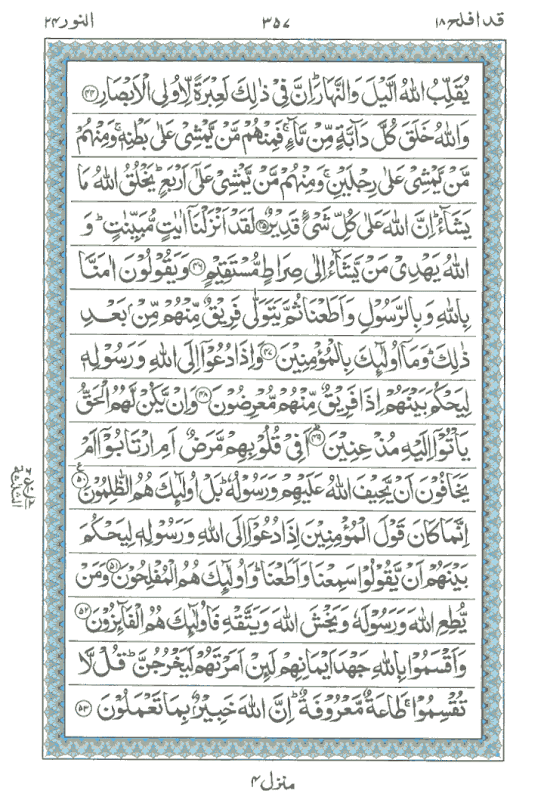 قد افلح ١٨ ٣٥٧ النور ٢٤
يُقَلِّبُ اللّٰهُ الَّيْلَ وَالنَّهَارَ ؕ اِنَّ فِيْ ذٰلِكَ لَعِبْرَةً لِّاُولِي الْاَبْصَارِ ﴿۴۴﴾
وَاللّٰهُ خَلَقَ كُلَّ دَآبَّةٍ مِّنْ مَّآءٍ ۚ فَمِنْهُمْ مَّنْ يَّمْشِيْ عَلٰى بَطْنِهٖ ۚ وَمِنْهُمْ
مَّنْ يَّمْشِيْ عَلٰى رِجْلَيْنِ ۚ وَمِنْهُمْ مَّنْ يَّمْشِيْ عَلٰٓى اَرْبَعٍ ؕ يَخْلُقُ اللّٰهُ مَا
يَشَآءُ ؕ اِنَّ اللّٰهَ عَلٰى كُلِّ شَيْءٍ قَدِيْرٌ ﴿۴۵﴾ لَقَدْ اَنْزَلْنَاۤ اٰيٰتٍ مُّبَيِّنٰتٍ ؕ وَ
اللّٰهُ يَهْدِيْ مَنْ يَّشَآءُ اِلٰى صِرَاطٍ مُّسْتَقِيْمٍ ﴿۴۶﴾ وَيَقُوْلُوْنَ اٰمَنَّا
بِاللّٰهِ وَبِالرَّسُوْلِ وَاَطَعْنَا ثُمَّ يَتَوَلّٰى فَرِيْقٌ مِّنْهُمْ مِّنْۢ بَعْدِ
ذٰلِكَ ؕ وَمَاۤ اُولٰٓئِكَ بِالْمُؤْمِنِيْنَ ﴿۴۷﴾ وَاِذَا دُعُوْٓا اِلَى اللّٰهِ وَرَسُوْلِهٖ
لِيَحْكُمَ بَيْنَهُمْ اِذَا فَرِيْقٌ مِّنْهُمْ مُّعْرِضُوْنَ ﴿۴۸﴾ وَاِنْ يَّكُنْ لَّهُمُ الْحَقُّ
يَاْتُوْٓا اِلَيْهِ مُذْعِنِيْنَ ﴿۴۹﴾ اَفِيْ قُلُوْبِهِمْ مَّرَضٌ اَمِ ارْتَابُوْٓا اَمْ
يَخَافُوْنَ اَنْ يَّحِيْفَ اللّٰهُ عَلَيْهِمْ وَرَسُوْلُهٗ ؕ بَلْ اُولٰٓئِكَ هُمُ الظّٰلِمُوْنَ ﴿۵۰﴾
اِنَّمَا كَانَ قَوْلَ الْمُؤْمِنِيْنَ اِذَا دُعُوْٓا اِلَى اللّٰهِ وَرَسُوْلِهٖ لِيَحْكُمَ
بَيْنَهُمْ اَنْ يَّقُوْلُوْا سَمِعْنَا وَاَطَعْنَا ؕ وَاُولٰٓئِكَ هُمُ الْمُفْلِحُوْنَ ﴿۵۱﴾ وَمَنْ
يُّطِعِ اللّٰهَ وَرَسُوْلَهٗ وَيَخْشَ اللّٰهَ وَيَتَّقْهِ فَاُولٰٓئِكَ هُمُ الْفَآئِزُوْنَ ﴿۵۲﴾
وَاَقْسَمُوْا بِاللّٰهِ جَهْدَ اَيْمَانِهِمْ لَئِنْ اَمَرْتَهُمْ لَيَخْرُجُنَّ ؕ قُلْ لَّا
تُقْسِمُوْا ۚ طَاعَةٌ مَّعْرُوْفَةٌ ؕ اِنَّ اللّٰهَ خَبِيْرٌۢ بِمَا تَعْمَلُوْنَ ﴿۵۳﴾
منزل ٤